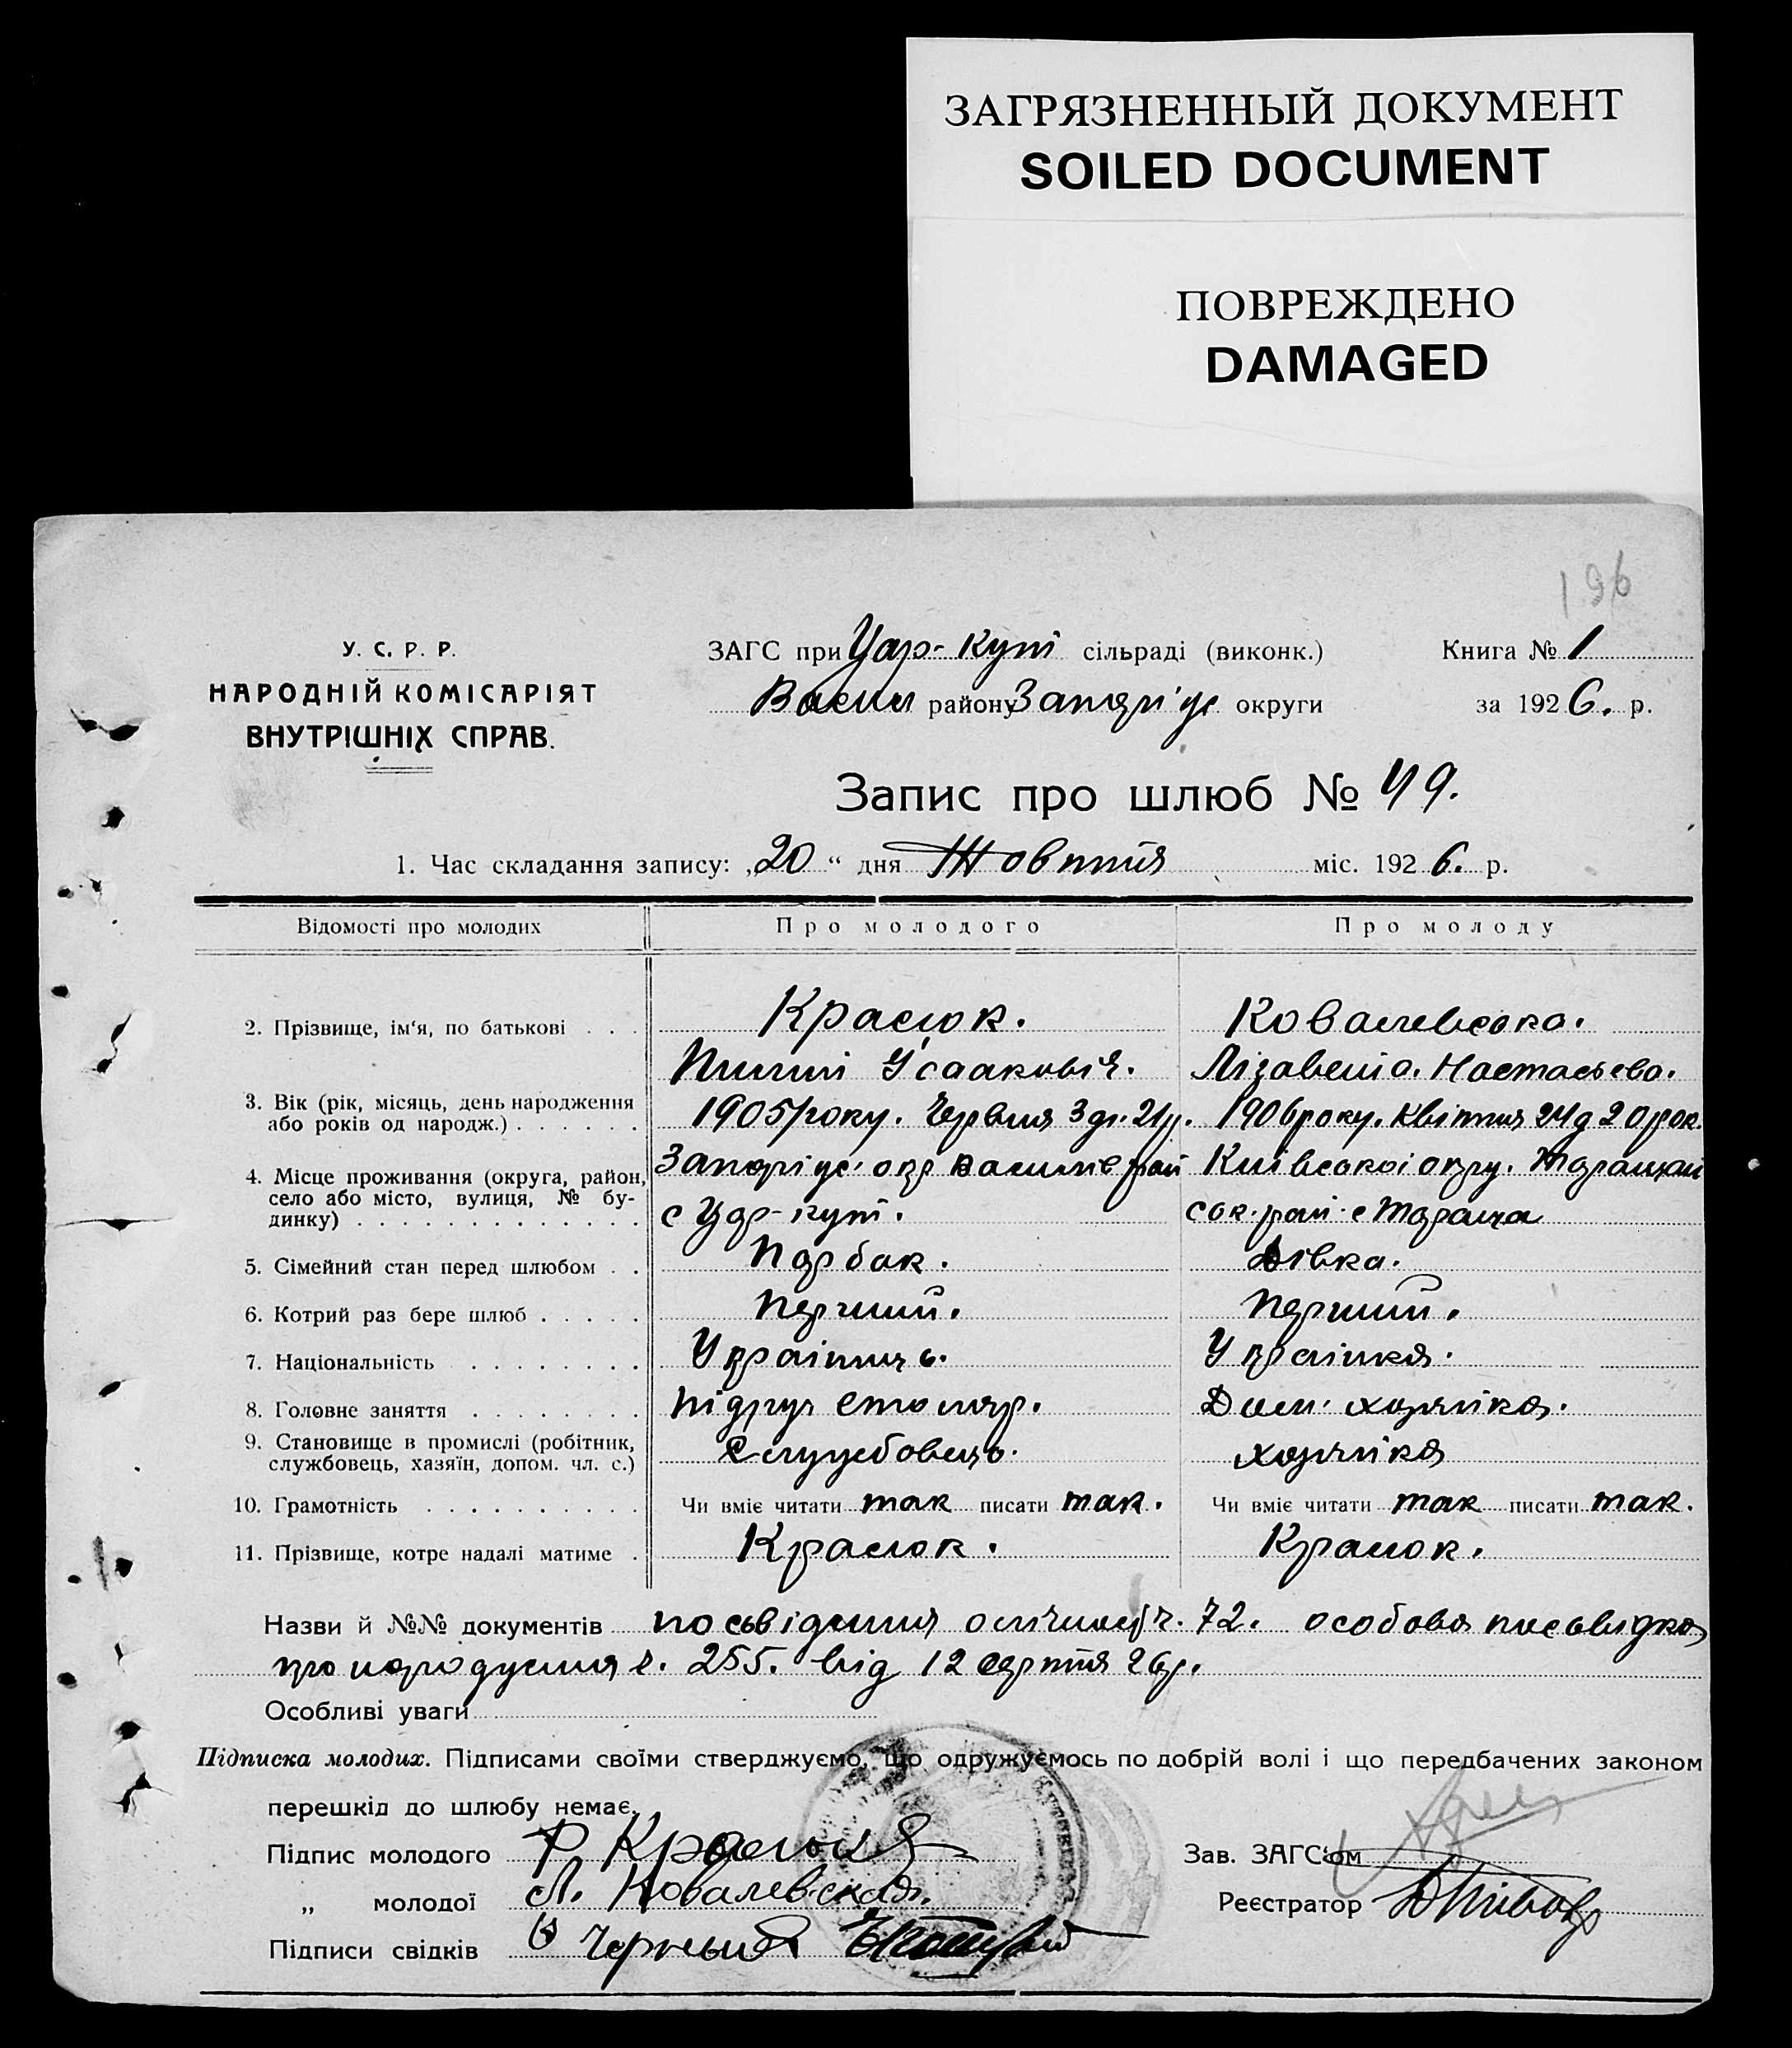 ЗАГРЯЗНЕННЫЙ ДОКУМЕНТ
SOILED DOCUMENT
ПОВРЕЖДЕНО
DAMAGED
196
У. С. Р. Р.
НАРОДНІЙ КОМІСАРІЯТ
ВНУТРІШНІХ СПРАВ.
ЗАГС при Цар-Кут сільраді (виконк.)
Васил району Запоріж округи
Книга № 1
за 1926. р.
Запис про шлюб № 49.
1. Час складання запису: „20“ дня Жовтня міс. 1926. р.
Відомості про молодих Про молодого Про молоду
2. Прізвище, ім'я, по батькові . . . Краслюк. Ковалевська.
Ісаакович. Лізавета.
3. Вік (рік, місяць, день народження 1905 року. Червня 3 дн. 21 р. 1906 року. Квітня 24 д 20 рок.
або років од народж.) . . . . . .
4. Місце проживання (округа, район, Київської окру.
село або місто, вулиця, № бу- с Цар-кут. рай. с Тараща
динку) . . . . . . . . . . . . .
5. Сімейний стан перед шлюбом . . Парбак. Дівка.
6. Котрий раз бере шлюб . . . . . Перший. Перший.
7. Національність . . . . . . . . Українць. Українка.
8. Головне заняття . . . . . . . . Підруч столяр. Дом. хазяйка.
9. Становище в промислі (робітник, Службовець. хазяйка
службовець, хазяїн, допом. чл. с.)
10. Грамотність . . . . . . . . . . Чи вміє читати так писати так. Чи вміє читати так писати так.
11. Прізвище, котре надалі матиме .
Назви й №№ документів посвідчення 72. особова посьвидка
про народження ч. 255. від 12 серпня 26 р.
Особливі уваги
Підписка молодих. Підписами своїми стверджуємо, що одружуємось по добрій волі і що передбачених законом
перешкід до шлюбу немає.
Підпис молодого
„ молодої Л. Ковалевская.
Підписи свідків
Зав. ЗАГС'ом
Реєстратор